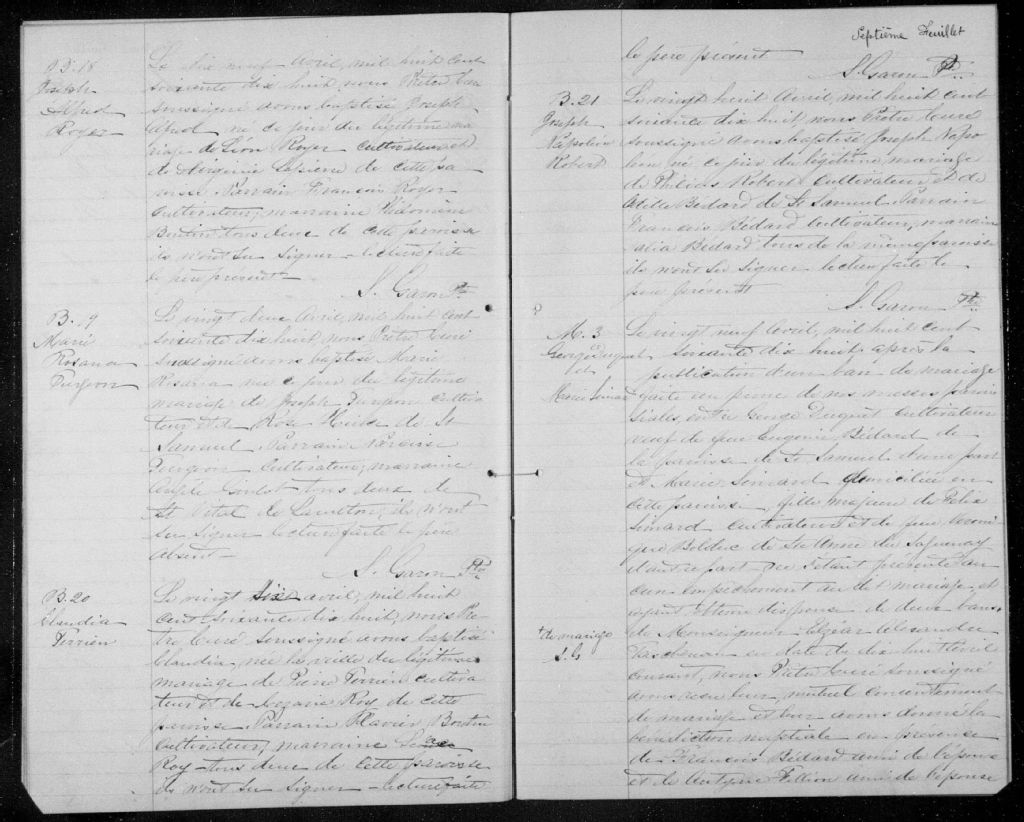 B. 18
Joseph
Alfred
Royer
Le dix neuf Avril, mil huit cent
soixante dix huit, nous Prêtre Curé
soussigné avons baptisé Joseph
Alfred né ce jour du légitime ma
riage de Léon Royer cultivateur et
de Virginie de cette pa
roisse Parrain François Royer
cultivateur, marraine Philomène
Boutin tous deux de cette paroisse
ils n'ont su signer - lecture faite
le père présent
S. Garon Ptre
B. 19
Marie
Rosanna
Turgeon
Le vingt deux Avril, mil huit cent
soixante dix huit, nous Prêtre Curé
soussigné avons baptisé Marie
Rosanna née ce jour du légitime
mariage de Joseph Turgeon cultiva
teur et de Rose de St
Samuel. Parrain Narcisse
Turgeon cultivateur, marraine
Angèle tous deux de
St Vital de Lambton, ils n'ont
su signer lecture faite le père
absent -
S. Garon Ptre
B. 20
Claudia
Terrien
Le vingt six avril, mil huit
cent soixante dix huit, nous Prê
tre Curé soussigné avons baptisé
Claudia née la veille du légitime
mariage de Pierre Terrien cultiva
teur et de Roy de cette
paroisse Parrain Flavien Boutin
cultivateur, marraine
Roy - tous deux de cette paroisse
ils n'ont su signer - lecture faite
Septième Feuillet
le père présent
S. Garon Ptre
B. 21
Joseph
Napoléon
Robert
Le vingt huit Avril, mil huit cent
soixante dix huit, nous Prêtre Curé
soussigné avons baptisé Joseph Napo
léon né ce jour du légitime mariage
de Philias Robert cultivateur, et de
Odille Bédard de St Samuel. Parrain
François Bédard cultivateur, marraine
Bédard tous de la même paroisse
ils n'ont su signer lecture faite le
père présent
S. Garon Ptre
M. 3
George Duquet
et
Marie Simard
Le vingt neuf Avril, mil huit cent
soixante dix huit après la
publication d'un ban de mariage
faite au prône de nos messes parois
siales, entre George Duquet cultivateur
veuf de feue Eugénie Bédard de
la paroisse de St Samuel d'une part
et Marie Simard domiciliée en
cette paroisse fille majeure de Félix
Simard cultivateur et de feue Véroni
que Bolduc de Ste Anne du Saguenay
d'autre part, ne s'étant présenté au
cun empêchement au dt mariage, et
ayant obtenu dispense de deux bans +
de Monseigneur Elzéar Alexandre
Taschereau en date du dix huit Avril
courant, nous Prêtre Curé soussigné
avons reçu leur mutuel consentement
de mariage et leur avons donné la
bénédiction nuptiale en présence
de François Bédard ami de l'époux
et de Fillion ami de l'épouse
+ de mariage
S. G